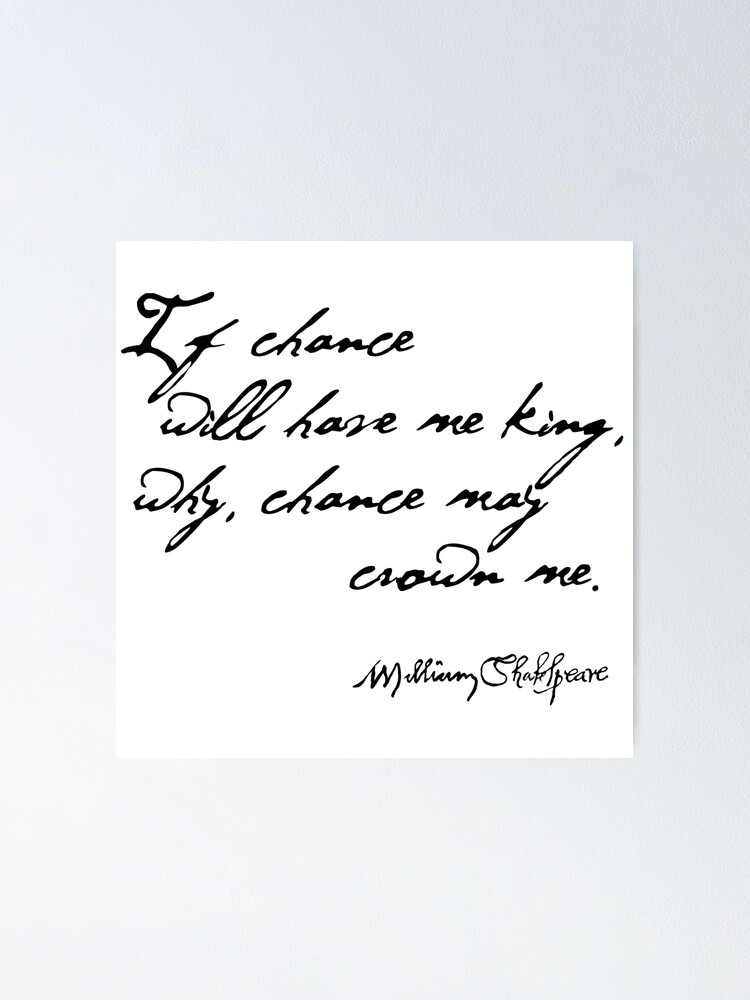 If chance
will have me king,
why, chance may
crown me.
William Shakspeare